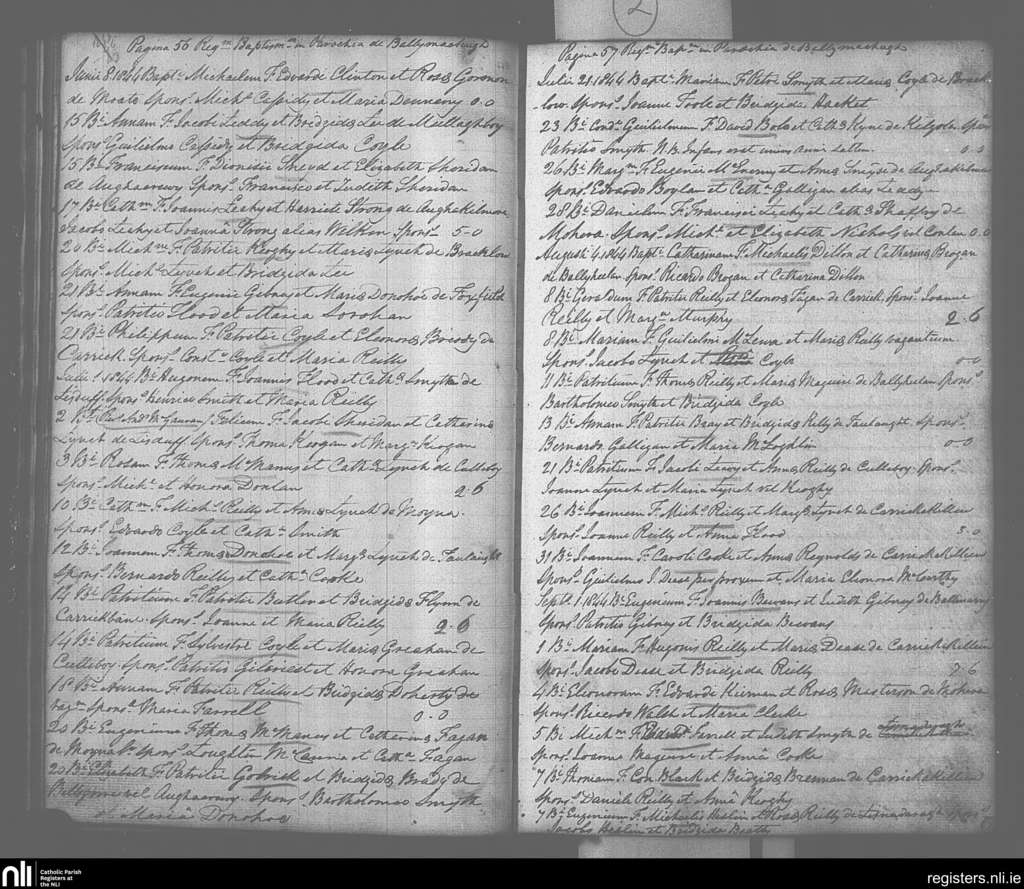 2
Pagina 56 Regm Baptism in Parochia de Ballymachugh
Junii 8 1844 Bapt. Michaelem F. Edvardi Clinton et Rosæ
de Moate Spons. Mich. Cassidy et Maria Denneny 0.0
15 Bt. Annam F. Jacobi Leddy et Bridgidæ Lee de Mullaghboy
Spons Guilielmus Cassidy et Bridgida Coyle
15 Bt. Franciscum F. Dionisii Sheud et Elizabeth Sheridan
de Spons. Francisco et Judith Sheridan
17 Bt. Cathm F. Joannis Leahy et Harriete Strong de Aughakilmore
Jacobs Leahy et Joanna Strong alias Wilkin Spons. 5-0
20 Bt. Michm F. Patritii Keoghy et Mariæ Lynch de Bracklon
Spons. Mich. Lynch et Bridgida Lee
21 Bt. Annam F. Eugenii Gibnay et Mariæ Donohoe de Foxfield
Spons. Patritio Flood et Maria
21 Bt. Philippum F. Patritii Coyle et Elenoræ de
Carrick. Spons. Const. Coyle et Maria Reilly
Julii 1 1844 Bt. Hugonem F. Joannis Flood et Cathæ Smythe de
Lisduff Spons. henrico Smith et Maria Reilly
2 Bt. Felicem F. Jacobi Sheridan et Catherinæ
Lynch de Lisduff Spons. Thoma Keogan et Marg. Keogan
3 Bt. Rosam F. Thomæ McManus et Cathæ Lynch de Culleboy
Spons. Mich. et Honora Donlan 2-6
10 Bt. Cathm F. Mich. Reilly et Annæ Lynch de Moyna
Spons. Edvardo Coyle et Cath. Smith
12 Bt. Joannem F. Thomæ Donohoe et Margæ Lynch de Faulaught
Spons. Bernardo Reilly et Cath. Cooke
14 Bt. Patritium F. Patritii Butler et Bridgidæ Flynn de
Carrickbane. Spons. Joanne et Maria Reilly 2-6
14 Bt. Patritium F. Sylvestri Coyle et Mariæ Greahan de
Culleboy. Spons. Patritio et Honora Greahan
18 Bt. Annam F. Patritii Reilly et Bridgidæ Doherty de
vagn Spons. Maria Farrell 0-0
20 Bt. Eugenium F. Thomæ McManus et Catherinæ Fagan
de Moyna. Spons. et Catha Fagan
20 Bt. Elizabeth F. Patritii et Bridgidæ Brady de
vel Aughavowny. Spons. Bartholomeo Smyth
et Maria Donohoe
Pagina 57 Regm Bapm in Parochia de Ballymachugh
Julii 21 1844 Bapt. Mariam F. Petri Smyth et Mariæ Coyle de Brack-
low Spons. Joanne Toole et Bridgida Hacket
23 Bt. Condt. Guilielmum F. David Bole et Cathæ Kyne de Kilgola Spons.
Patritio Smyth N.B. Infans erat unius anni 0-0
26 Bt. Margm F. Eugenii McEnerny et Annæ de Aughakilmore
Spons. Edvardo Boylan et Cath. Galligan alias Leddy
28 Bt. Danielem F. Francisci Leahy et Cathæ Shaffry de
Mohera Spons. Mich. et Elizabeth Nichols vel Conlan 0-0
Augusti 4 1844 Bapt. Catharinam F. Michaelis Dillon et Catharinæ Brogan
de Ballyheelan Spons. Ricardo Brogan et Catharina Dillon
8 Bt. Geraldum F. Patritii Reilly et Elenoræ Fagan de Carrick Spons. Joanne
Reilly et Marga Murphy 2-6
8 Bt. Mariam F. Guilielmi et Mariæ Reilly vagantium
Spons. Jacobo Lynch et Coyle 0-0
11 Bt. Patritium F. Thomæ Reilly et Mariæ Maguire de Ballyheelan Spons.
Bartholomeo Smyth et Bridgida Coyle
13 Bt. Annam F. Patritii Bray et Bridgidæ Reilly de Faulaught. Spons.
Bernardo Galligan et Maria McLoghlin 0-0
21 Bt. Patritium F. Jacobi Leavy et Annæ Reilly de Culleboy. Spons.
Joanne Lynch et Maria Lynch vel Keoghy
26 Bt. Joannem F. Mich. Reilly et Margæ Lynch de Carrickakillew
Spons. Joanne Reilly et Anna Flood 5-0
31 Bt. Joannem F. Caroli Cooke et Annæ Reynolds de Carrickakilleen
Spons. Guilielmo J. Dease per proxum et Maria Elenora McCarthy
Septb. 1 1844 Bt. Eugenium F. Joannis Bevans et Judith Gibney de
Spons. Patritio Gibney et Bridgida Bevans
1 Bt. Mariam F. Hugonis Reilly et Mariæ Dease de Carrickakilleen
Spons. Jacobo Dease et Bridgida Reilly 2-6
4 Bt. Elionoram F. Edvardi Kiernan et Rosæ Masterson de Mohera
Spons. Ricardo Walsh et Maria Clarke
5 Bt. Michm F. Farrell et Judith Smyth de
Spons. Joanne Maguire et Anna Cooke
7 Bt. Thomam F. Con. Black et Bridgidæ Brennan de Carrickakilleen
Spons. Daniele Reilly et Anna Keoghy
7 Bt. Eugenium F. Michaelis Heslin et Rosæ Reilly de
Jacobo Heslin et Bridgida
nli Catholic Parish
Registers at
the NLI
registers.nli.ie